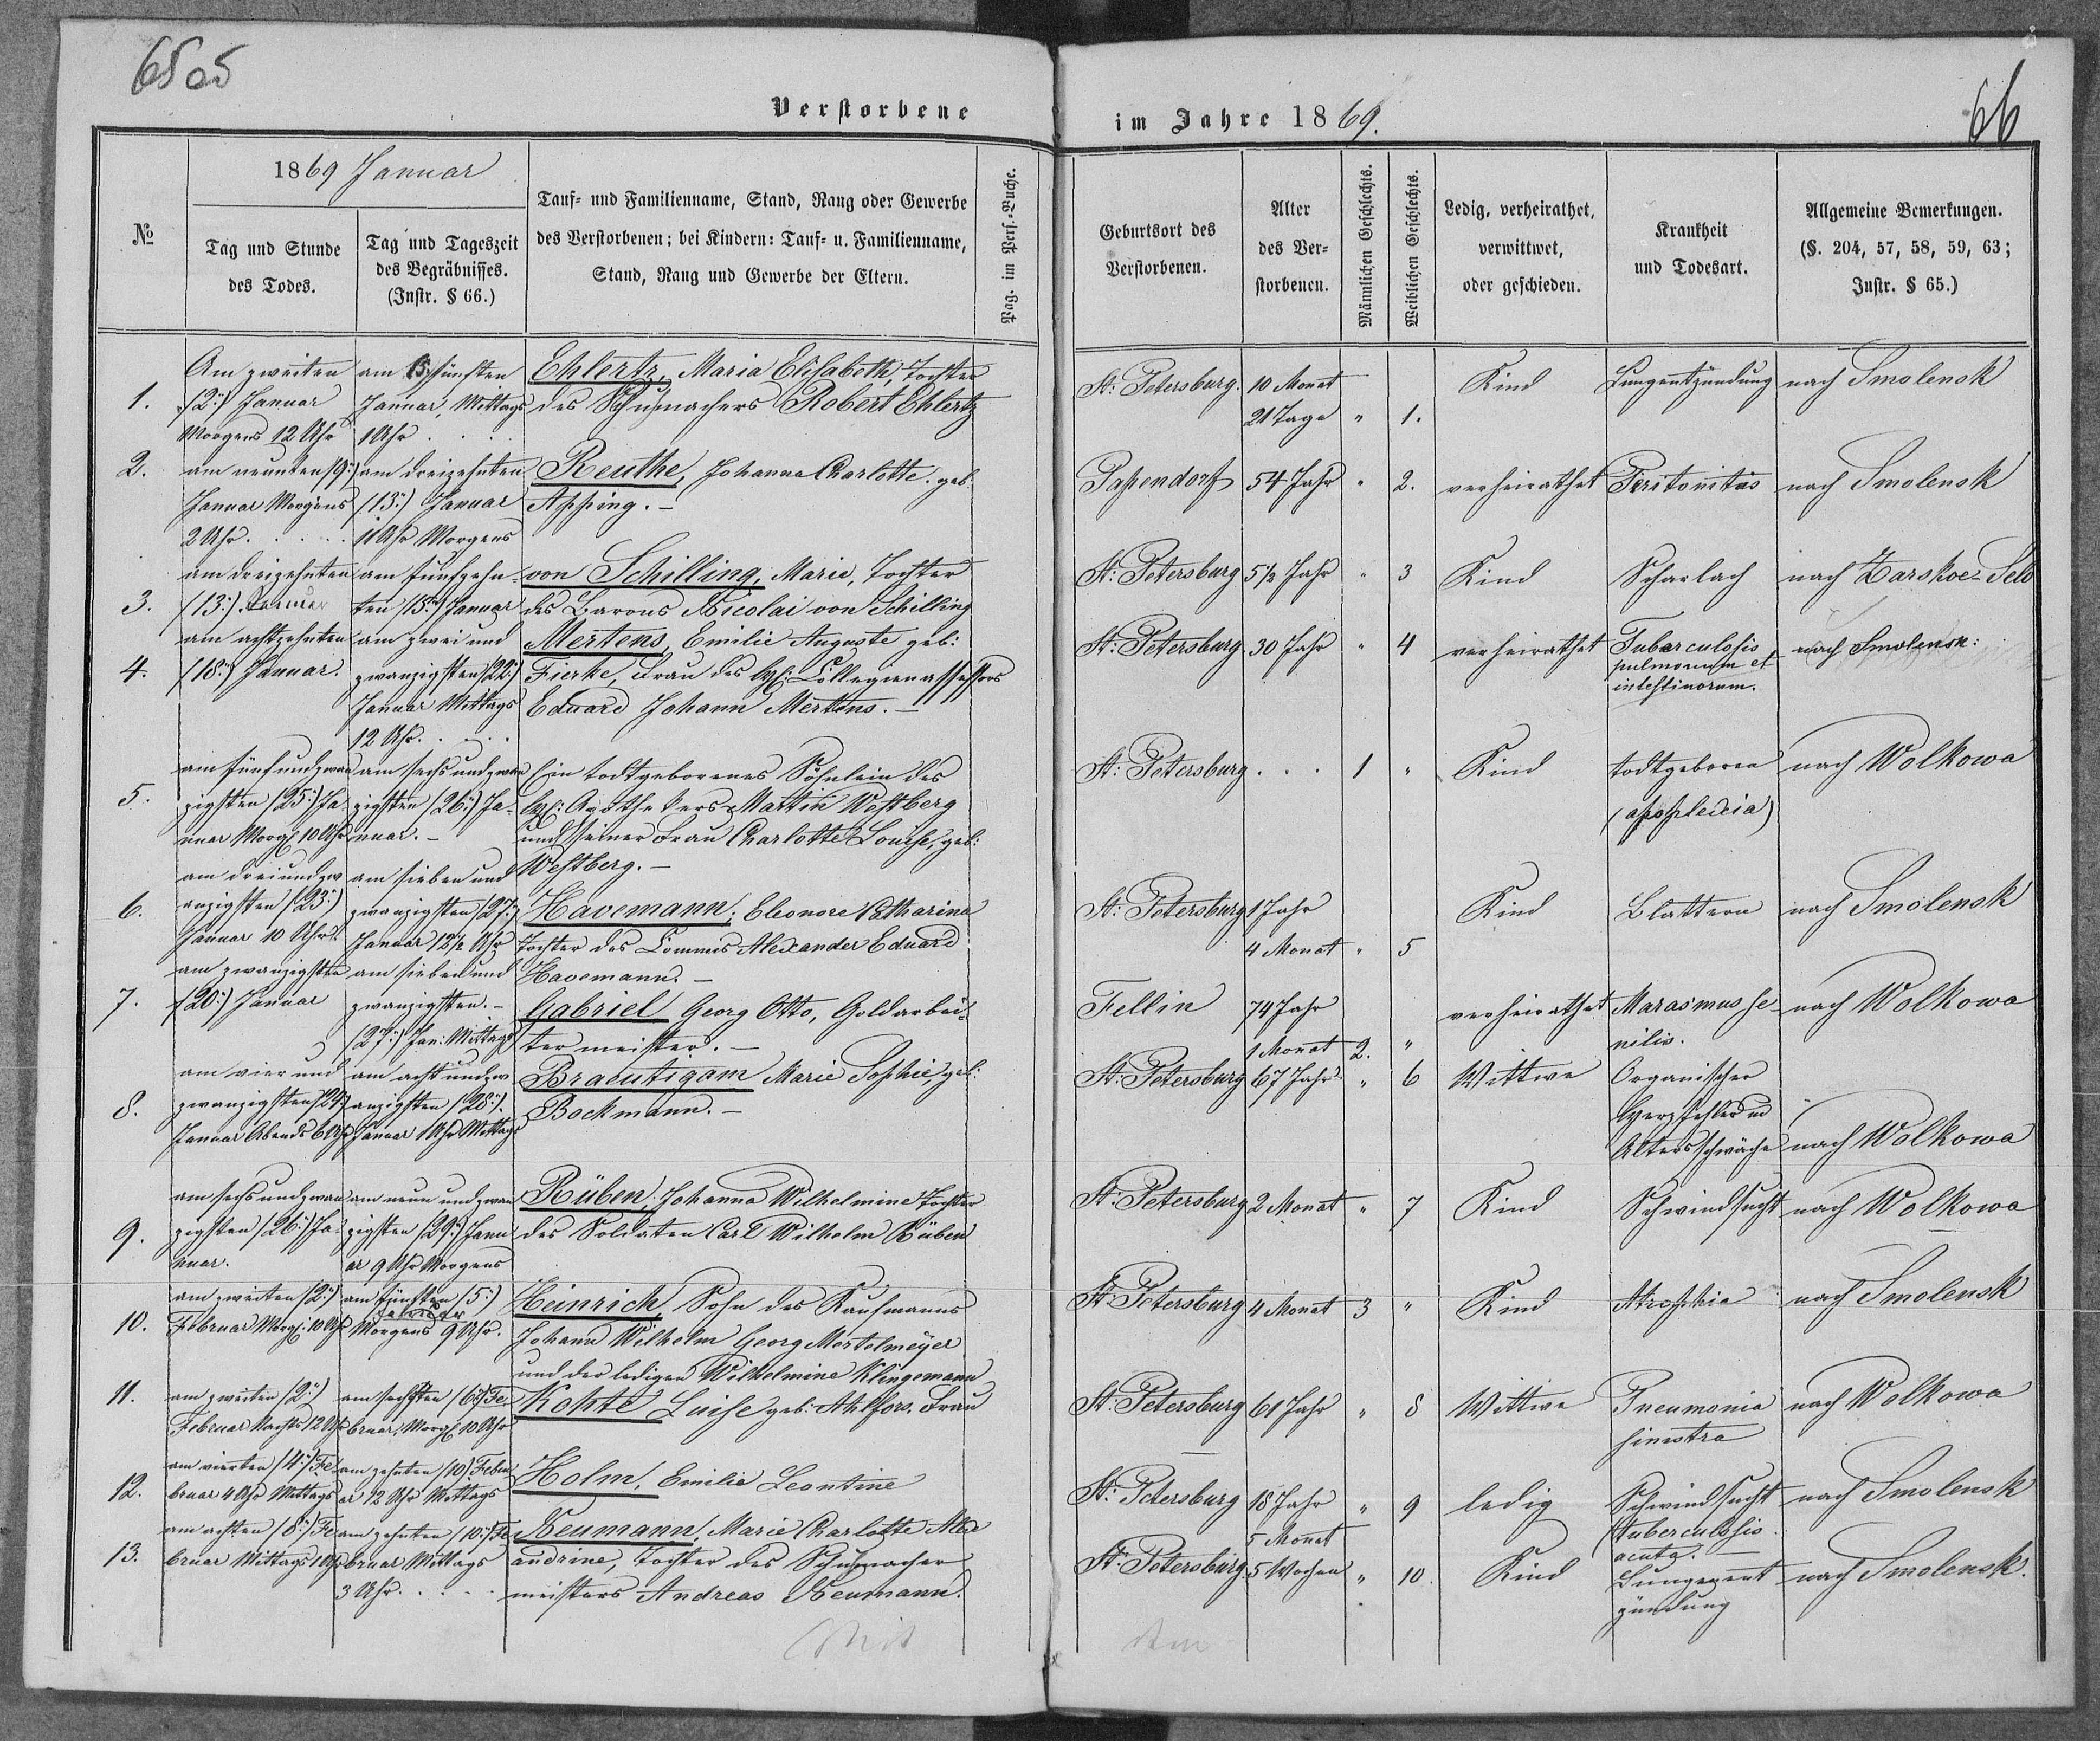 65 65
Verstorbene
im Jahre 1869.
66
№
1869 Januar
Tag und Stunde
des Todes.
Tag und Tageszeit
des Begräbnisses.
(Instr. § 66.)
Tauf- und Familienname, Stand, Rang oder Gewerbe
des Verstorbenen; bei Kindern: Tauf- u. Familienname,
Stand, Rang und Gewerbe der Eltern.
Pag. im Pers.-Buche.
Geburtsort des
Verstorbenen.
Alter
des Ver-
storbenen.
Männlichen Geschlechts.
Weiblichen Geschlechts.
Ledig, verheirathet,
verwittwet,
oder geschieden.
Krankheit
und Todesart.
Allgemeine Bemerkungen.
(§. 204, 57, 58, 59, 63;
Instr. § 65.)
1.
Am zweiten
(2:) Januar
Morgens 12 Uhr
am fünften
Januar, Mittags
1 Uhr . . . .
Ehlertz, Maria Elisabeth, Tochter
des Schuhmachers Robert Ehlertz
St: Petersburg.
10 Monat
21 Tage
" 1.
Kind
Lungentzündung
nach Smolensk
2.
am neunten (9:)
Januar Morgens
2 Uhr . . . . .
am dreizehnten
(13:) Januar
11 Uhr Morgens
Reuthe, Johanna Charlotte geb:
Apping. –
Papendorf
54 Jahr
" 2.
verheirathet
Peritonitis
nach Smolensk
3.
am dreizehnten
(13:) Januar
am fünfzehn-
ten (15:) Januar
von Schilling, Marie, Tochter
des Barons Nicolai von Schilling
St: Petersburg
5½ Jahr
" 3
Kind
Scharlach
nach Zarskoe-Selo
4.
am achtzehnten
(18:) Januar.
am zwei und
zwanzigsten (22:)
Januar Mittags
12 Uhr. . . . .
Mertens, Emilie Auguste geb:
Fierke, Frau des Collegienassessors
Eduard Johann Mertens. –
St: Petersburg
30 Jahr
" 4
verheirathet
Tuberculosis
pulmonum et
intestinorum.
nach Smolensk:
5.
am fünf und zwan
zigsten (25:) Ja
nuar Morg: 10 Uhr
am sechs und zwan
zigsten (26:) Ja-
nuar. –
Ein todtgeborenes Söhnlein des
Apothekers Martin Westberg
und seiner Frau Charlotte Louise, geb:
Westberg. –
St: Petersburg . . .
1 "
Kind
todtgeboren
(apoplexia)
nach Wolkowa
6.
am drei und zw
anzigsten (23:)
Januar 10 Uhr.
am sieben und
zwanzigsten (27:)
Januar 12½ Uhr
Havemann, Eleonore Catharina
Tochter des Commis Alexander Eduard
Havemann. –
St: Petersburg
1 Jahr
4 Monat
" 5
Kind
Blattern
nach Smolensk
7.
am zwanzigsten
(20:) Januar
am sieben und
zwanzigsten. –
(27:) Jan: Mittags
Gabriel Georg Otto, Goldarbei-
termeister. –
Fellin
74 Jahr
1 Monat
2. "
verheirathet
Marasmus se-
nilis.
nach Wolkowa
8.
am vier und
zwanzigsten (24:)
Januar Abends 6 Uhr
am acht und zw
anzigsten (28:)
Januar 1 Uhr Mittags
Braeutigam Marie Sophie, geb:
Bockmann. –
St: Petersburg
67 Jahr
" 6
Wittwe
Organischer
Herzfehler u
Altersschwäche
nach Wolkowa
9.
am sechs und zwan
zigsten (26:) Ja-
nuar.
am neun und zwan
zigsten (29:) Janu
ar 9 Uhr Morgens
Rüben, Johanna Wilhelmine Tochter
des Soldaten Carl Wilhelm Rüben
St: Petersburg
2 Monat
" 7
Kind
Schwindsucht
nach Wolkowa
10.
am zweiten (2:)
Februar Morg: 10 Uhr
am fünften (5:)
Februar
Morgens 9 Uhr.
Heinrich, Sohn des Kaufmanns
Johann Wilhelm Georg Mertelmeyer
und der ledigen Wilhelmine Klingemann
St: Petersburg
4 Monat
3 "
Kind
Atrophia
nach Smolensk
11.
am zweiten (2:)
Februar Nachts 12 Uhr
am sechsten (6:) Fe-
bruar, Morg: 10 Uhr
Kohte Luise geb: Ahlfors. Frau
St: Petersburg
61 Jahr
" 8
Wittwe
Pneumonia
sinistra
nach Wolkowa
12.
am vierten (4:) Fe
bruar 4 Uhr Mittags
am zehnten (10) Febru
ar 12 Uhr Mittags
Holm, Emilie Leontine
St: Petersburg
18 Jahr
5 Monat
" 9
ledig
Schwindsucht
(tuberculosis
acuta. –
nach Smolensk
13.
am achten (8:) Fe
bruar Mittags 1 Uhr
am zehnten (10:) Fe
bruar Mittags
3 Uhr. . . . .
Neumann, Marie Charlotte Alex
andrine, Tochter des Schuhmacher
meisters Andreas Neumann.
St: Petersburg.
5 Wochen
" 10.
Kind
Lungenent
zündung
nach Smolensk.